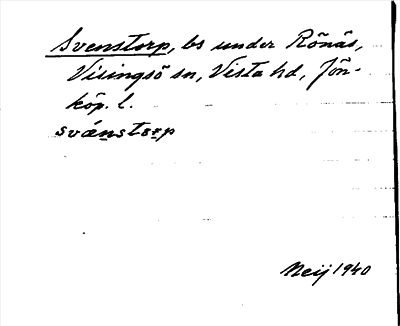 Svenstorp, bs under Rönäs,
Visingsö sn, Vista hd, Jön-
köp. l.
svánstorp
Meij 1940